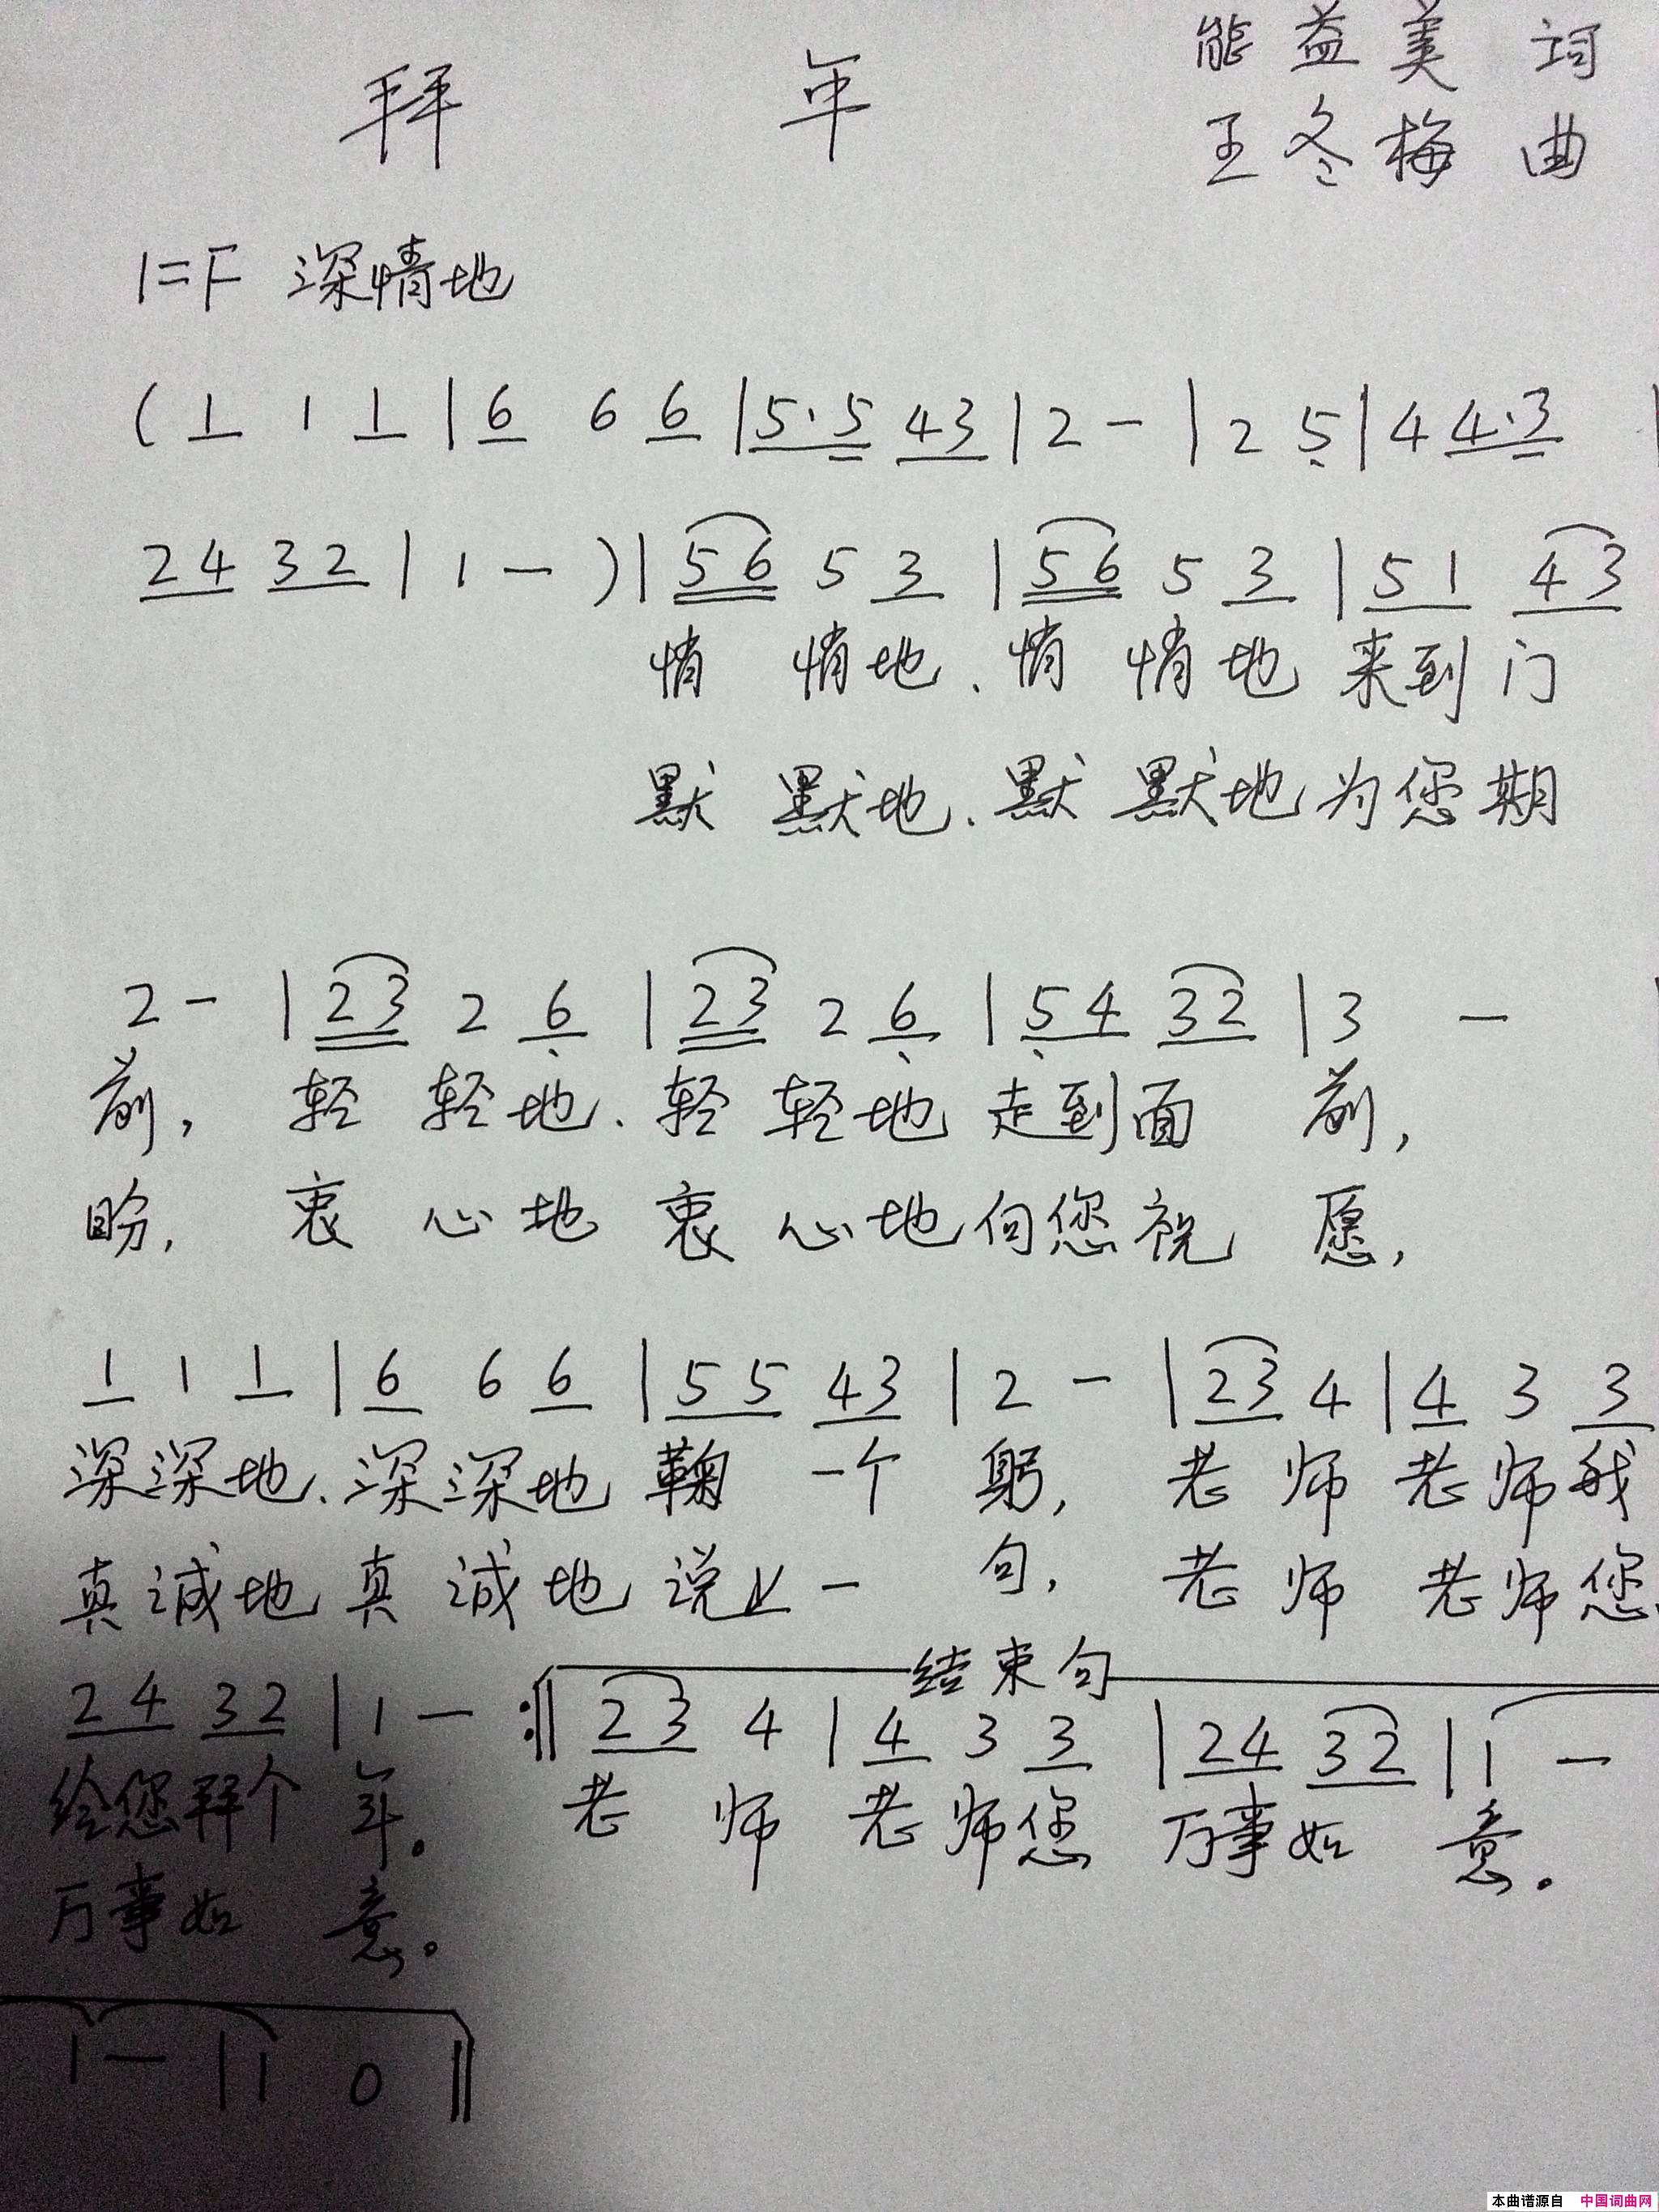 拜 年
能益美 词
王冬梅 曲
1=F 深情地
( 1 1 1 | 6 6 6 | 5·5 43 | 2 - | 2 5 | 4 4·3 |
24 32 | 1 - ) | 56 5 3 | 56 5 3 | 51 43
悄 悄地、悄 悄地 来到门
默 默地、默 默地为您期
2 - | 23 2 6 | 23 2 6 | 54 32 | 3 - |
前, 轻 轻地、轻 轻地 走到面 前,
盼, 衷 心地 衷 心地向您祝 愿,
1 1 1 | 6 6 6 | 55 43 | 2 - | 23 4 | 4 3 3
深深地、深深地 鞠 一个 躬, 老 师 老师我
真诚地 真诚地 说上一 句, 老师 老师您
结束句
24 32 | 1 - :‖ 23 4 | 4 3 3 | 24 32 | 1 -
给您拜个 年。 老 师 老师您 万事如 意。
万事如 意。
1 - | 1 0 ‖
本曲谱源自 中国词曲网